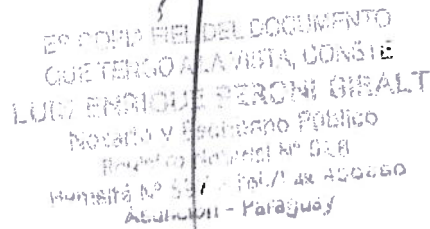 ES COPIA FIEL DEL DOCUMENTO
QUE TENGO A LA VISTA, CONSTE
LUIS ENRIQUE PERONI GIRALT
Notario y Escribano Público
Registro Notarial Nº
Humaitá Nº
Asunción - Paraguay